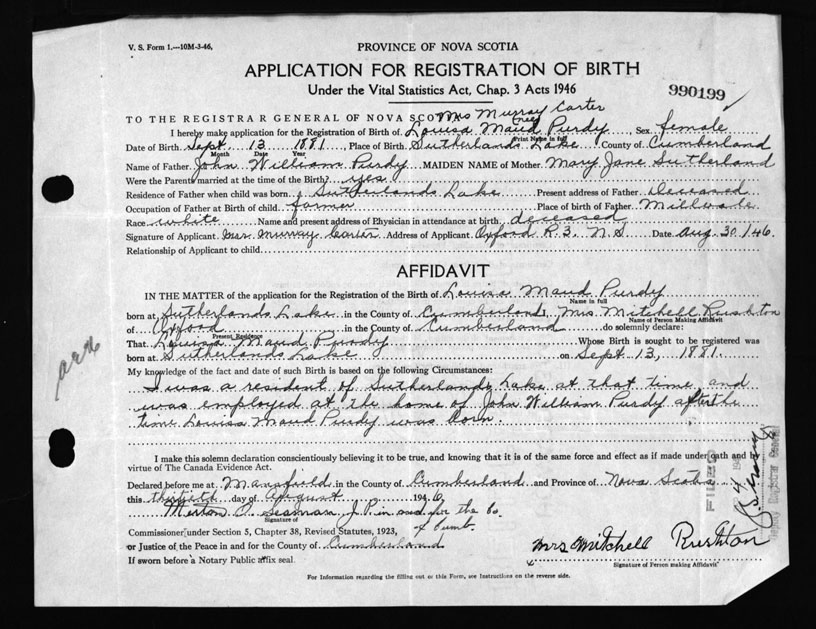 V. S. Form 1.—10M-3-46,
PROVINCE OF NOVA SCOTIA
APPLICATION FOR REGISTRATION OF BIRTH
Under the Vital Statistics Act, Chap. 3 Acts 1946
990199
Mrs Murray Carter
TO THE REGISTRAR GENERAL OF NOVA SCOTIA
(nee)
I hereby make application for the Registration of Birth of Louisa Maud Purdy, Sex female
Print Name in full
Date of Birth Sept. 13 1881, Place of Birth Sutherlands Lake County of Cumberland
Month Date Year
Name of Father John William Purdy MAIDEN NAME of Mother Mary Jane Sutherland
Were the Parents married at the time of the Birth? yes
Residence of Father when child was born Sutherlands Lake Present address of Father Deceased
Occupation of Father at Birth of child farmer Place of birth of Father Millvale
Race white Name and present address of Physician in attendance at birth deceased
Signature of Applicant Mrs Murray Carter Address of Applicant Oxford R.3, N.S Date Aug. 30/46.
Relationship of Applicant to child
AFFIDAVIT
IN THE MATTER of the application for the Registration of the Birth of Louisa Maud Purdy
Name in full
born at Sutherlands Lake in the County of Cumberland, Mrs. Mitchell Rushton
Name of Person Making Affidavit
of Oxford in the County of Cumberland do solemnly declare:
Present Residence
That Louisa Maud Purdy Whose Birth is sought to be registered was
born at Sutherlands Lake on Sept 13, 1881.
My knowledge of the fact and date of such Birth is based on the following Circumstances:
I was a resident of Sutherlands Lake at that time, and
was employed at the home of John William Purdy after the
time Louisa Maud Purdy was born.
I make this solemn declaration conscientiously believing it to be true, and knowing that it is of the same force and effect as if made under oath and by
virtue of The Canada Evidence Act.
Declared before me at Mansfield in the County of Cumberland and Province of Nova Scotia
this thirtieth day of August 1946,
Merton O. Seaman J.P. in and for the Co.
Signature of
of Cumb.
Commissioner under Section 5, Chapter 38, Revised Statutes, 1923,
or Justice of the Peace in and for the County of Cumberland
If sworn before a Notary Public affix seal.
Mrs Mitchell Rushton
Signature of Person making Affidavit
For Information regarding the filling out of this Form, see Instructions on the reverse side.
FILED
Deputy Registrar General